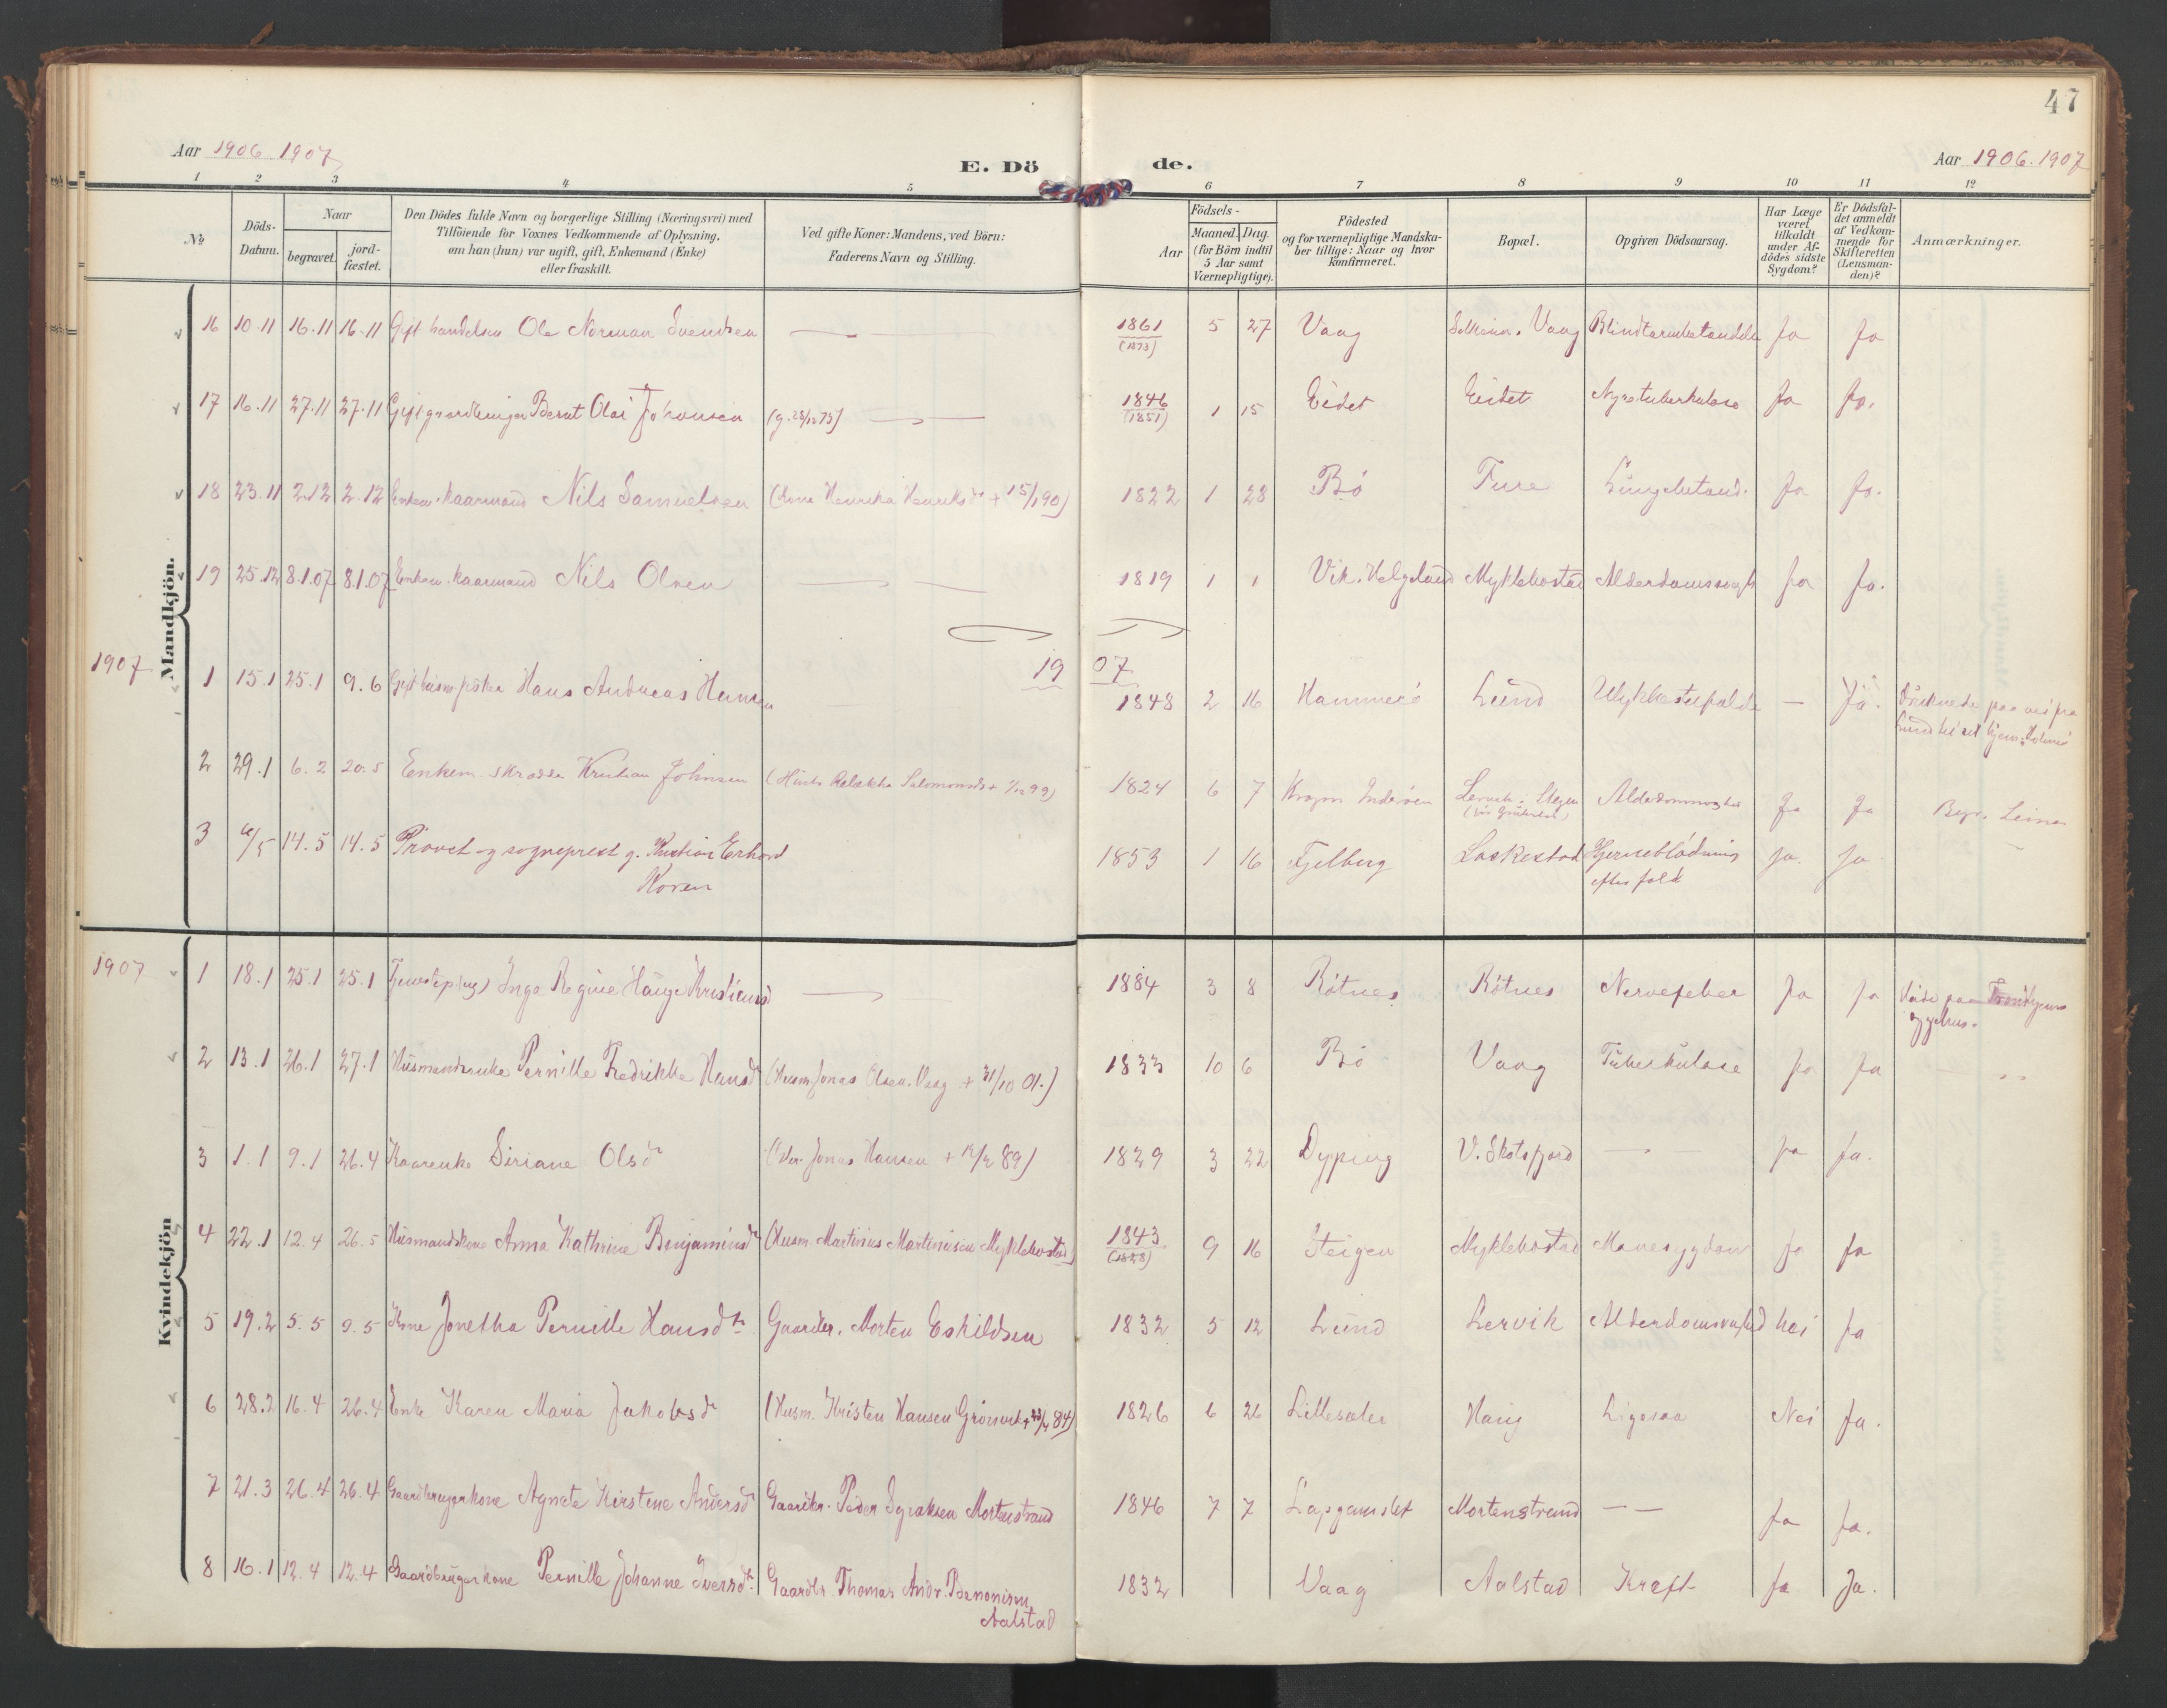 47
Aar 1906 1907
E. Dö
de.
Aar 1906. 1907
1 2 3 4 5 6 7 8 9 10 11 12
№
Döds-Datum.
Naar
begravet.
jord-fæstet.
Den Dödes fulde Navn og borgerlige Stilling (Næringsvei) med
Tilföiende for Voxnes Vedkommende af Oplysning,
om han (hun) var ugift, gift, Enkemand (Enke)
eller fraskilt.
Ved gifte Koner: Mandens, ved Börn:
Faderens Navn og Stilling.
Födsels-
Aar
Maaned. Dag.
(for Börn indtil
5 Aar samt
Værnepligtige).
Födested
og for værnepligtige Mandska-
ber tillige: Naar og hvor
konfirmeret.
Bopæl.
Opgiven Dödsaarsag.
Har Læge
været
tilkaldt
under Af-
dödes sidste
Sygdom?
Er Dödsfal-
det anmeldt
af Vedkom-
mende for
Skifteretten
(Lensman-
den)?
Anmærkninger.
Mandkjön.
16 10.11 16.11 16.11 Gift Ole Norman Svendsen — 1861 5 27 Vaag Vaag Ja Ja
(1873)
17 16.11 27.11 27.11 Gift gaardbruger Bernt Olai Johansen — 1846 1 15 Eidet Eidet Ja Ja.
(1851)
18 23.11 2.12 2.12 Enkem. kaarmand Nils Samuelsen (Kone Henrika Henriksdr + 15/1 90) 1822 1 28 Bö Fure Lungebetænd. Ja Ja.
19 25.12 8.1.07 8.1.07 Enkem. kaarmand Nils Olsen — 1819 1 1 Vik. Helgeland Myklebostad Ja Ja.
1907
1907
1 15.1 25.1 9.6 Gift Hans Andreas Hansen 1848 2 16 Hammerö Lund Ulykkestilfælde — Ja. Druknede paa vei fra
Lund til sit hjem
2 29.1 6.2 20.5 Enkem. skrædder Kristian Johnsen 1824 6 7 Lervik i Steigen Ja Ja Begr. Leines
3 14.5 14.5 Provst og sogneprest g. Kristian Erhard
Koren 1853 1 16 Fjelberg Laskestad Hjerneblödning
efter fald Ja. Ja
1907
Kvindekjön
1 18.1 25.1 25.1 Inga Regine Hauge Kristiansd — 1884 3 8 Rötnes Rötnes Nervefeber Ja Ja Döde paa Trondhjems
sygehus.
2 13.1 26.1 27.1 Husmandsenke Pernille Fredrikke Hansdr (Husm. Jonas Olsen. Vaag + 31/10 01.) 1833 10 6 Bö Vaag Tuberkulose Ja Ja
3 1.1 9.1 26.4 Kaarenke Siriane Olsdr Jonas Hansen 89) 1829 3 22 Dyping V. Skotsfjord — Ja Ja.
4 22.1 12.4 26.5 Husmandskone Anna Kathrine Benjaminsdr (Husm. Martinus Martinusen Myklebostad) 1843 9 16 Steigen Myklebostad Mavesygdom Ja Ja
(1828)
5 19.2 5.5 9.5 Kone Jonetha Pernille Hansdtr Gaardbr. Morten Eskildsen 1832 5 12 Lund Lervik Nei Ja
6 28.2 16.4 26.4 Enke Karen Maria Jakobsdr (Husm. Kristen Hansen 84) 1826 6 26 Haug Ligesaa Nei Ja.
7 21.3 26.4 26.4 Gaardbrugerkone Agnete Kirstine Andersdr Gaardbr. Peder Syraksen Mortenstrand 1846 7 7 Mortenstrand — Ja Ja.
8 16.1 12.4 12.4 Gaardbrugerkone Pernille Johanne Iversdtr Gaardbr. Thomas Andr. Benonisen
Aalstad 1832 Vaag Aalstad Kræft Ja Ja.